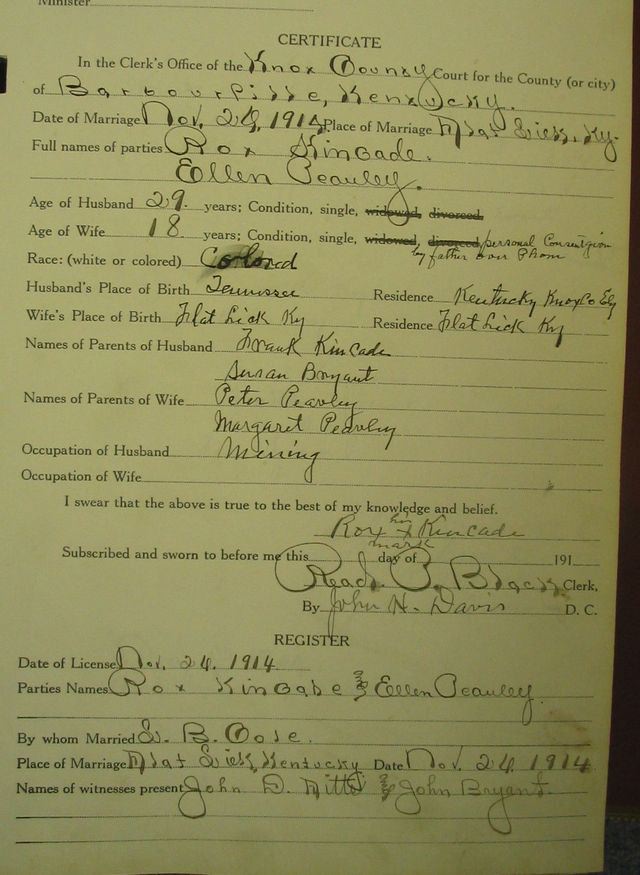 Minister
CERTIFICATE
In the Clerk's Office of the Knox County Court for the County (or city)
of Barbourville, Kentucky.
Date of Marriage Nov. 24, 1914 Place of Marriage Flat Lick, Ky.
Full names of parties Rox Kincade.
Ellen Peavley.
Age of Husband 29. years; Condition, single, widowed, divorced.
Age of Wife 18 years; Condition, single, widowed, divorced, personal Consent given
by father over Phone
Race: (white or colored) Colored
Husband's Place of Birth Tennessee Residence Kentucky Knox Co
Wife's Place of Birth Flat Lick Ky Residence Flat Lick Ky
Names of Parents of Husband Frank Kincade
Susan Bryant
Names of Parents of Wife Peter Peavley
Margaret Peavley
Occupation of Husband Mining
Occupation of Wife
I swear that the above is true to the best of my knowledge and belief.
Rox his x mark Kincade
Subscribed and sworn to before me this day of 191
Read P. Black Clerk,
By John H. Davis D. C.
REGISTER
Date of License Nov. 24. 1914
Parties Names Rox Kincade & Ellen Peavley
By whom Married B. Cole.
Place of Marriage Flat Lick, Kentucky Date Nov. 24 1914
Names of witnesses present John D. Mitts & John Bryant.